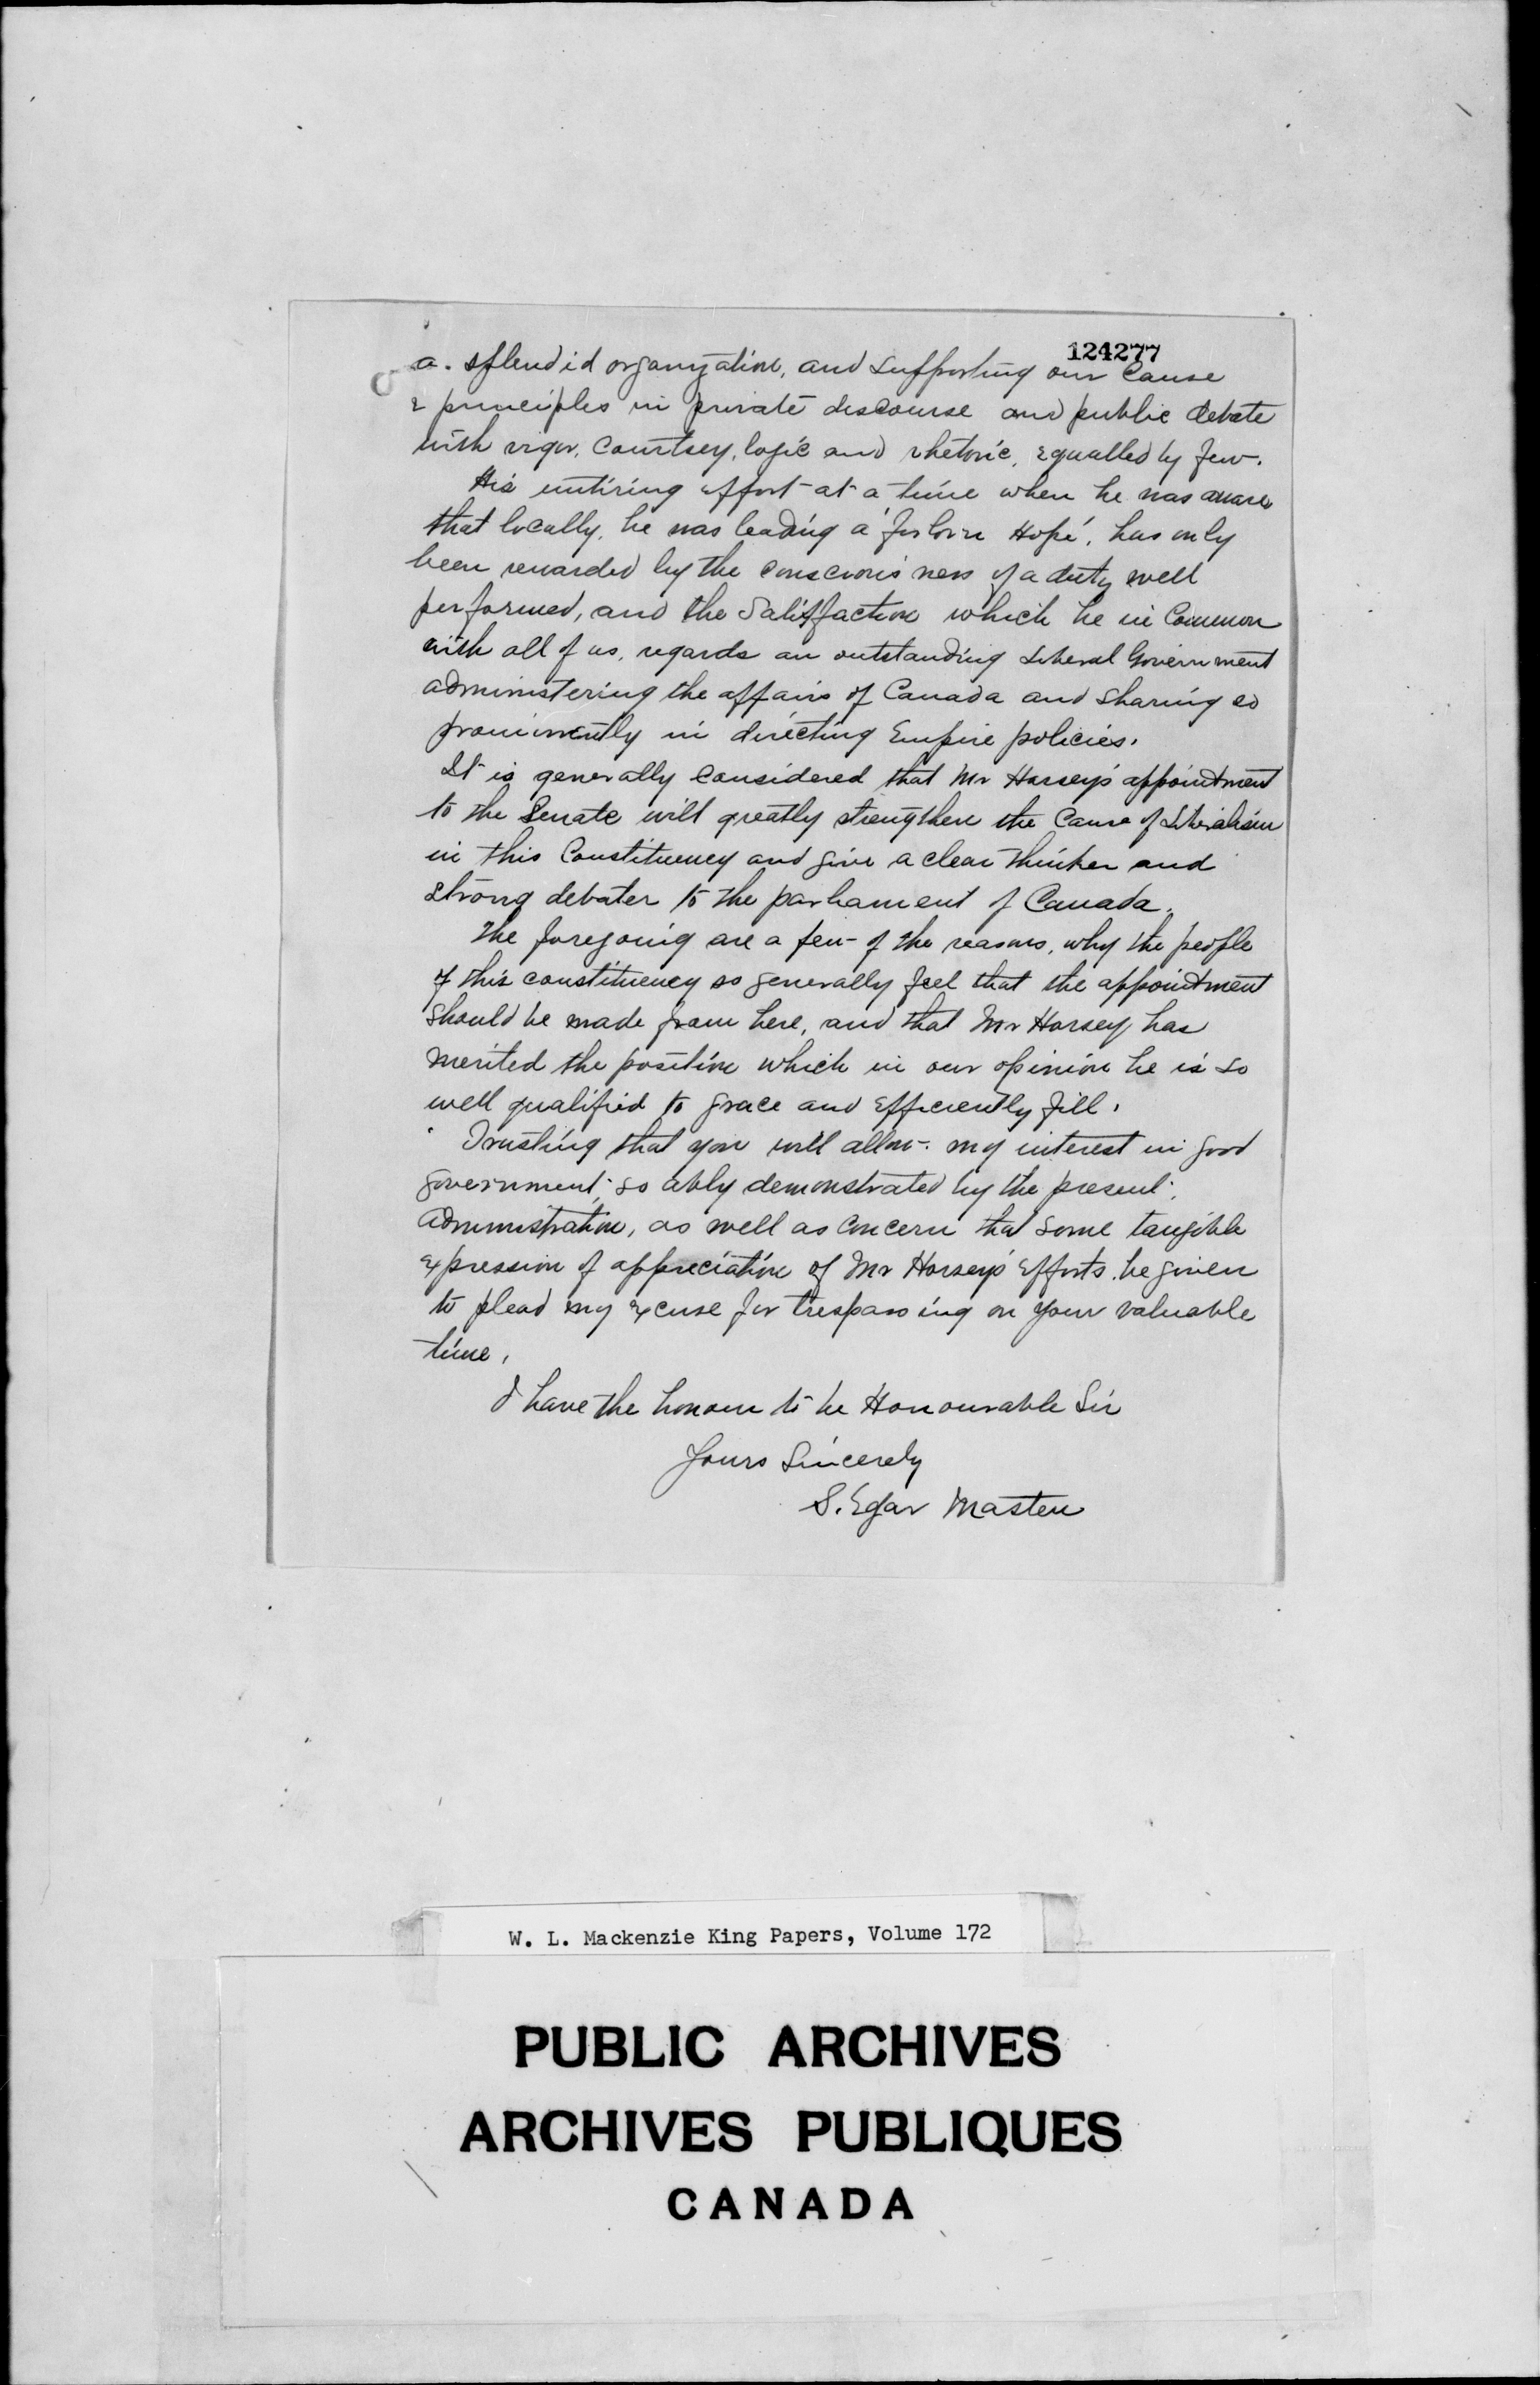 124277
a. splendid organization, and supporting our Cause
& principles in private discourse and public debate
with vigor, Courtsey, logic and rhetoric, equalled by few.
His untiring effort at a time when he was aware
that locally, he was leading a 'forlorn Hope', has only
been rewarded by the consciousness of a duty well
performed, and the Satisfaction which he in Common
with all of us, regards an outstanding Liberal Government
administering the affairs of Canada and sharing so
prominently in directing Empire policies.
It is generally considered that Mr Horsey's appointment
to the Senate will greatly strengthen the Cause of Liberalism
in this Constituency and give a clear thinker and
strong debater to the parliament of Canada.
The foregoing are a few of the reasons, why the people
of this constituency so generally feel that the appointment
should be made from here, and that Mr Horsey has
merited the position which in our opinion he is so
well qualified to grace and efficiently fill.
Trusting that you will allow my interest in good
government, so ably demonstrated by the present
administration, as well as concern that some tangible
expression of appreciation of Mr Horsey's efforts, be given
to plead my excuse for trespassing on your valuable
time,
I have the honour to be Honourable Sir
Yours Sincerely
S. Edgar Masten
W. L. Mackenzie King Papers, Volume 172
PUBLIC ARCHIVES
ARCHIVES PUBLIQUES
CANADA